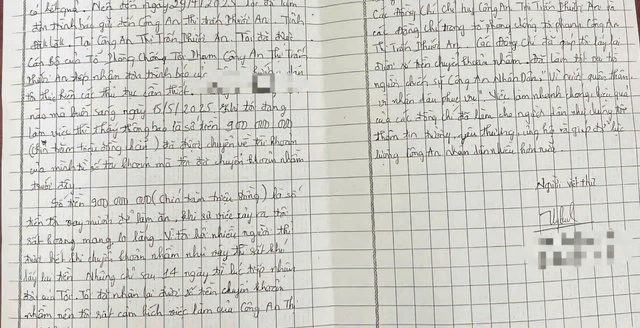 có kết quả. Nên đến ngày 29/4/2025
đơn trình báo gửi đến Công An thị trấn Phước An. Tỉnh
Đắk Lắk. Tại Công An Thị Trấn Phước An. Tôi đã được
Cán bộ của Tổ Phòng Chống Tội Phạm Công An Thị Trấn
Phước An tiếp nhận đơn trình báo
thủ tục cần thiết.
mà buổi sáng ngày 15/5/2025 khi tôi đang
làm việc thì thấy thông báo là số tiền 900 000 000
(Chín trăm triệu đồng chẵn) đã được chuyển về tài khoản
của mình từ số tài khoản mà tôi đã chuyển khoản nhầm
trước đây.
Số tiền 900.000 000 (Chín trăm triệu đồng) là số
tiền tôi vay mượn để làm ăn, khi sự việc xảy ra tôi
rất hoang mang, lo lắng. Vì tôi hỏi nhiều người thì
được biết khi chuyển khoản nhầm như vậy thì rất khó
lấy lại tiền. Nhưng chỉ sau 14 ngày từ lúc tiếp nhận
đơn của Tôi, Tôi đã nhận lại được số tiền chuyển khoản
nhầm nên tôi rất cảm kích việc làm của Công An Thị
Các đồng chí chỉ huy Công An Thị Trấn Phước An và
các đồng chí trong tổ phòng chống tội phạm Công An
Thị Trấn Phước An. Các đồng chí đã giúp tôi lấy lại
được số tiền chuyển khoản nhầm. Đã làm tốt vai trò
người chiến sỹ Công An Nhân Dân, "Vì nước quên thân,
vì nhân dân phục vụ". Việc làm nhanh chóng, hiệu quả
của các đồng chí đã làm cho người dân như chúng tôi
thêm tin tưởng, yêu thương, ủng hộ và giúp đỡ lực
lượng Công An nhân dân nhiều hơn nữa.
Người viết thư